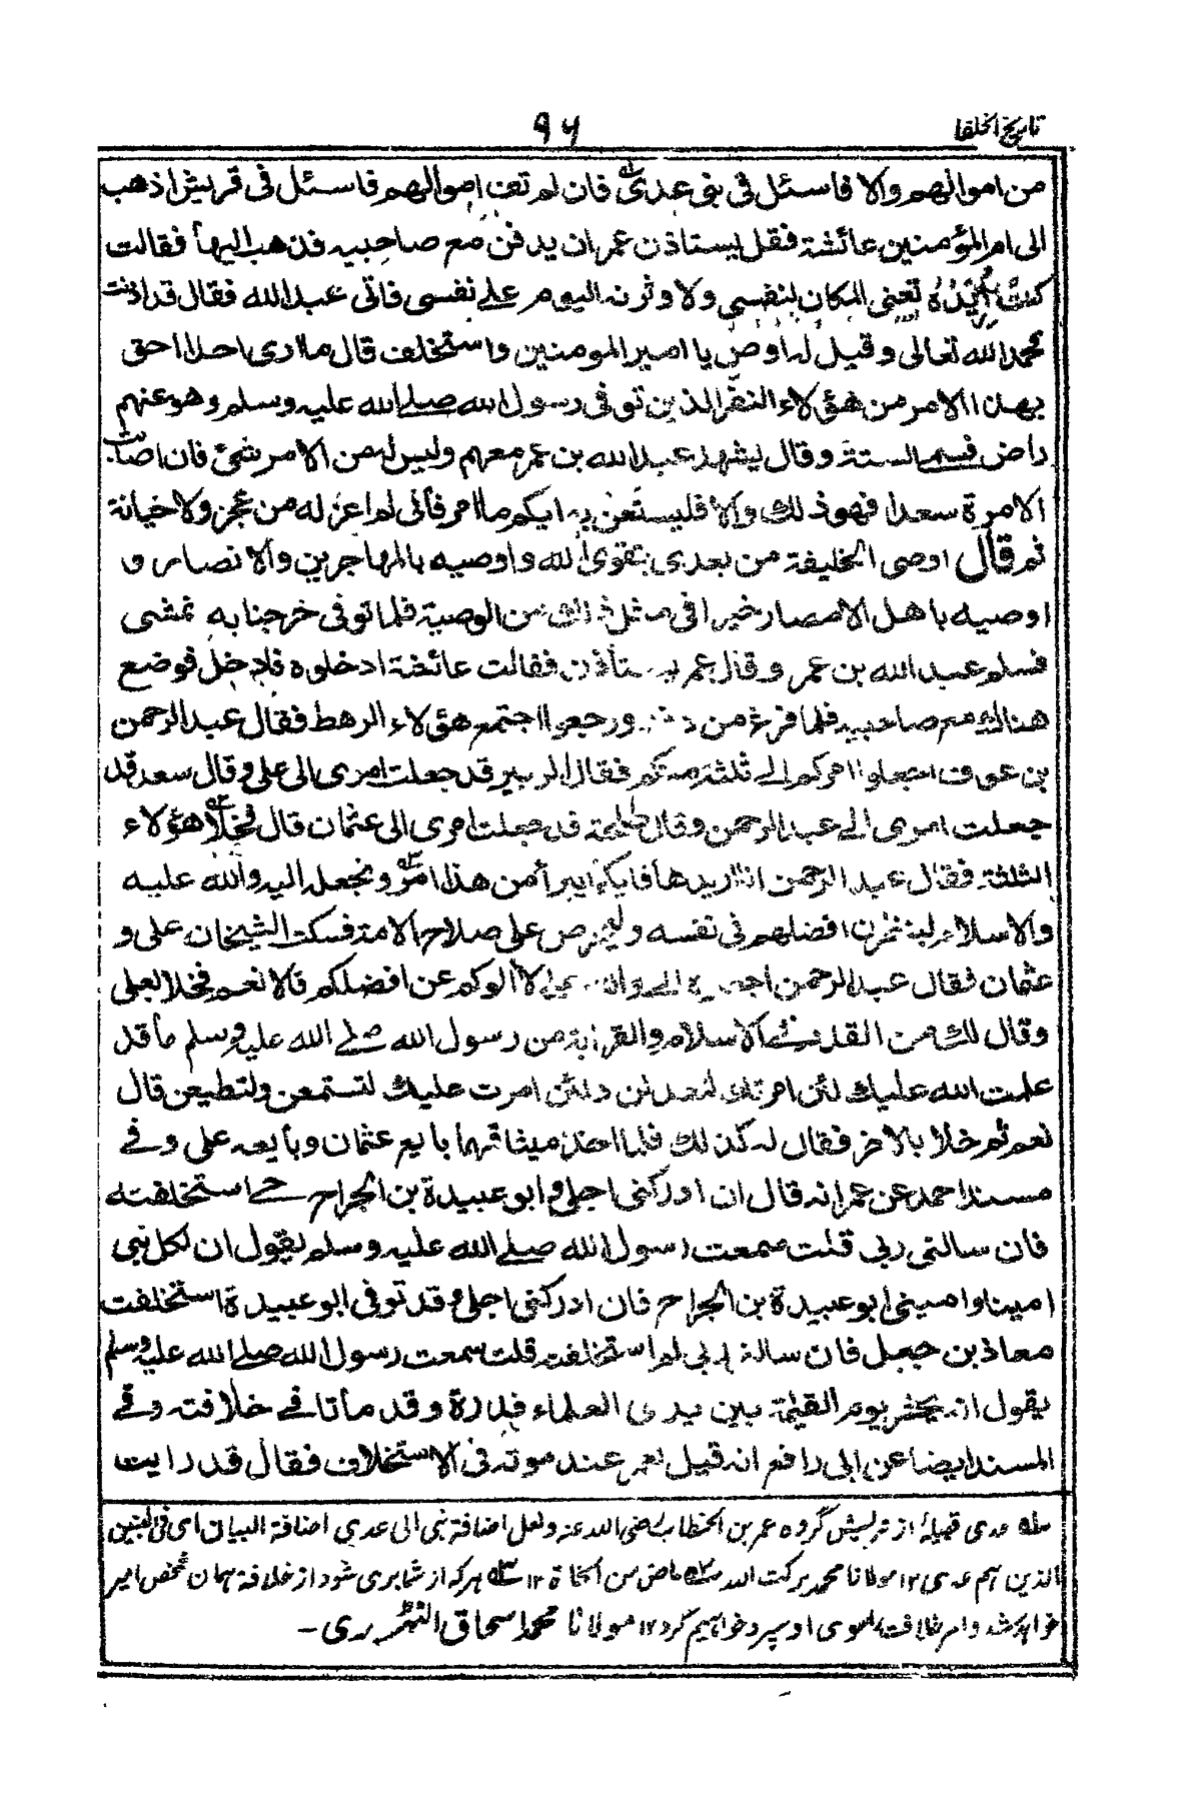 تاريخ الخلفا
٩٦
من اموالهم والا فاسئل في بني عدي فان لم تف اموالهم فاسئل في قريش اذهب
الى ام المؤمنين عائشة فقل يستاذن عمر ان يدفن مع صاحبيه فذهب اليها فقالت
كنت اريده تعني المكان لنفسي ولاوثرنه اليوم على نفسي فاتى عبد الله فقال قد اذنت
فحمد الله تعالى وقيل له اوص يا امير المومنين واستخلف قال ما ارى احدا احق
بهذا الامر من هؤلاء النفر الذين توفي رسول الله صلى الله عليه وسلم وهو عنهم
راض فسمى الستة وقال يشهد عبد الله بن عمر معهم وليس له من الامر شئ فان اصابت
الامرة سعدا فهو ذلك والا فليستعن به ايكم ما امر فاني لم اعزله من عجز ولا خيانة
ثم قال اوصي الخليفة من بعدي بتقوى الله واوصيه بالمهاجرين والانصار و
اوصيه باهل الامصار خيرا في مثل ذلك من الوصية فلما توفي خرجنا به نمشي
فسلم عبد الله بن عمر وقال عمر يستأذن فقالت عائشة ادخلوه فادخل فوضع
هنالك مع صاحبيه فلما فرغ من دفنه ورجعوا اجتمع هؤلاء الرهط فقال عبد الرحمن
بن عوف اجعلوا امركم الى ثلثة منكم فقال الزبير قد جعلت امري الى علي وقال سعد قد
جعلت امري الى عبد الرحمن وقال طلحة قد جعلت امري الى عثمان قال فخلا هؤلاء
الثلثة فقال عبد الرحمن انا لا اريدها فايكما يبرأ من هذا الامر ونجعله اليه والله عليه
والاسلام لينظرن افضلهم في نفسه وليحرص على صلاح الامة فسكت الشيخان علي و
عثمان فقال عبد الرحمن اجعلوه الي والله علي لا آلوكم عن افضلكم قالا نعم فخلا بعلي
وقال لك من القدم في الاسلام والقرابة من رسول الله صلى الله عليه وسلم ما قد
علمت الله عليك لئن امرتك لتعدلن ولئن امرت عليك لتستمعن ولتطيعن قال
نعم ثم خلا بالاخر فقال له كذلك فلما اخذ ميثاقهما بايع عثمان وبايعه علي وفي
مسند احمد عن عمر انه قال ان ادركني اجلي وابو عبيدة بن الجراح حي استخلفته
فان سالني ربي قلت سمعت رسول الله صلى الله عليه وسلم يقول ان لكل نبي
امينا واميني ابو عبيدة بن الجراح فان ادركني اجلي وقد توفي ابو عبيدة استخلفت
معاذ بن جبل فان سالني ربي لم استخلفته قلت سمعت رسول الله صلى الله عليه وسلم
يقول انه يحشر يوم القيمة بين يدي العلماء نبذة وقد ماتا في خلافته وفي
المسند ايضا عن ابي رافع انه قيل لعمر عند موته في الاستخلاف فقال قد رايت
سله عدي قبيلۂ از قريش گروه عمر بن الخطاب رضي الله عنه ولعل اضافة بني الى عدي اضافة البيان اى في البنين
الذين هم عدى ١٢ مولانا محمد بركت الله سله ماض من ١٢ سله هر كه از شما برى شود از خلافة همان شخص امير
خواهد شد و امر خلافت بسوى او سپرد خواهيم كرد ١٢ مولانا محمد اسحاق